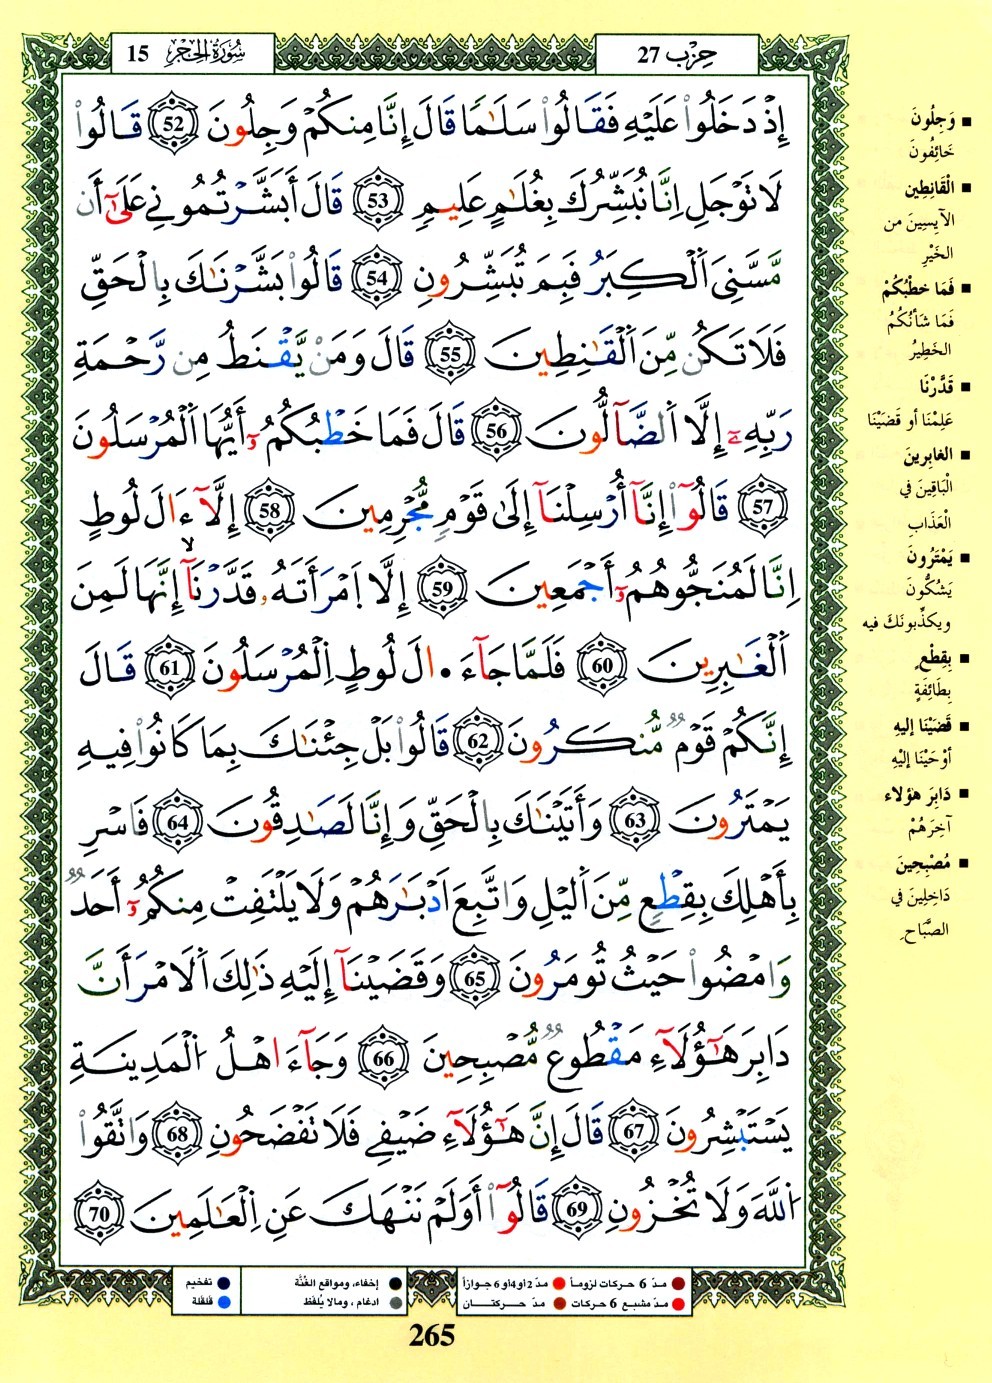 حِزْب 27
سُورَةُ الحِجْر 15
إِذْ دَخَلُواْ عَلَيْهِ فَقَالُواْ سَلَٰمًا قَالَ إِنَّا مِنكُمْ وَجِلُونَ 52 قَالُواْ
لَا تَوْجَلِ اِنَّا نُبَشِّرُكَ بِغُلَٰمٍ عَلِيمٍ 53 قَالَ أَبَشَّرْتُمُونِي عَلَىٰٓ أَن
مَّسَّنِيَ اَلْكِبَرُ فَبِمَ تُبَشِّرُونِ 54 قَالُواْ بَشَّرْنَٰكَ بِالْحَقِّ
فَلَا تَكُن مِّنَ اَلْقَٰنِطِينَ 55 قَالَ وَمَنْ يَّقْنَطُ مِن رَّحْمَةِ
رَبِّهِۦٓ إِلَّا اَلضَّآلُّونَ 56 قَالَ فَمَا خَطْبُكُمُۥٓ أَيُّهَا اَلْمُرْسَلُونَ
57 قَالُوٓاْ إِنَّآ أُرْسِلْنَآ إِلَىٰ قَوْمٍ مُّجْرِمِينَ 58 إِلَّآ ءَالَ لُوطٍ
اِنَّا لَمُنَجُّوهُمُۥٓ أَجْمَعِينَ 59 إِلَّا اَمْرَأَتَهُۥ قَدَّرْنَآ إِنَّهَا لَمِنَ
اَلْغَٰبِرِينَ 60 فَلَمَّا جَآءَ الَ لُوطٍ اِلْمُرْسَلُونَ 61 قَالَ
إِنَّكُمْ قَوْمٌ مُّنكَرُونَ 62 قَالُواْ بَلْ جِئْنَٰكَ بِمَا كَانُواْ فِيهِ
يَمْتَرُونَ 63 وَأَتَيْنَٰكَ بِالْحَقِّ وَإِنَّا لَصَٰدِقُونَ 64 فَاسْرِ
بِأَهْلِكَ بِقِطْعٍ مِّنَ اَلَيْلِ وَاتَّبِعَ اَدْبَٰرَهُمْ وَلَا يَلْتَفِتْ مِنكُمُۥٓ أَحَدٌ
وَامْضُواْ حَيْثُ تُومَرُونَ 65 وَقَضَيْنَآ إِلَيْهِ ذَٰلِكَ اَلَامْرَ أَنَّ
دَابِرَ هَٰٓؤُلَآءِ مَقْطُوعٌ مُّصْبِحِينَ 66 وَجَآءَ اهْلُ اُلْمَدِينَةِ
يَسْتَبْشِرُونَ 67 قَالَ إِنَّ هَٰٓؤُلَآءِ ضَيْفِي فَلَا تَفْضَحُونِ 68 وَاتَّقُواْ
اُللَّهَ وَلَا تُخْزُونِ 69 قَالُوٓاْ أَوَلَمْ نَنْهَكَ عَنِ اِلْعَٰلَمِينَ 70
■ وَجِلُونَ
خَائِفُونَ
■ الْقَانِطِين
الآيِسِينَ من
الخَيْرِ
■ فَمَا خطْبُكُمْ
فَمَا شَأنُكُمُ
الخَطِيرُ
■ قَدَّرْنَا
عَلِمْنَا أو قَضَيْنَا
■ الغابِرينَ
الْبَاقِينَ في
الْعَذَاب
■ يَمْتَرُونَ
يَشُكُّونَ
ويكذِّبونَكَ فيه
■ بِقِطْعٍ
بِطَائِفَةٍ
■ قَضَيْنَا إليهِ
أوْحَيْنَا إلَيْهِ
■ دَابِرَ هؤلاء
آخِرَهُمْ
■ مُصْبِحِينَ
دَاخِلِينَ في
الصَّبَاحِ
مدّ 6 حركات لزوماً
مدّ 2 أو 4 أو 6 جوازاً
إخفاء، ومواقع الغُنَّة
تفخيم
مدّ مشبع 6 حركات
مدّ حركتــان
ادغام ، ومالا يُلفَظ
قلقلة
265